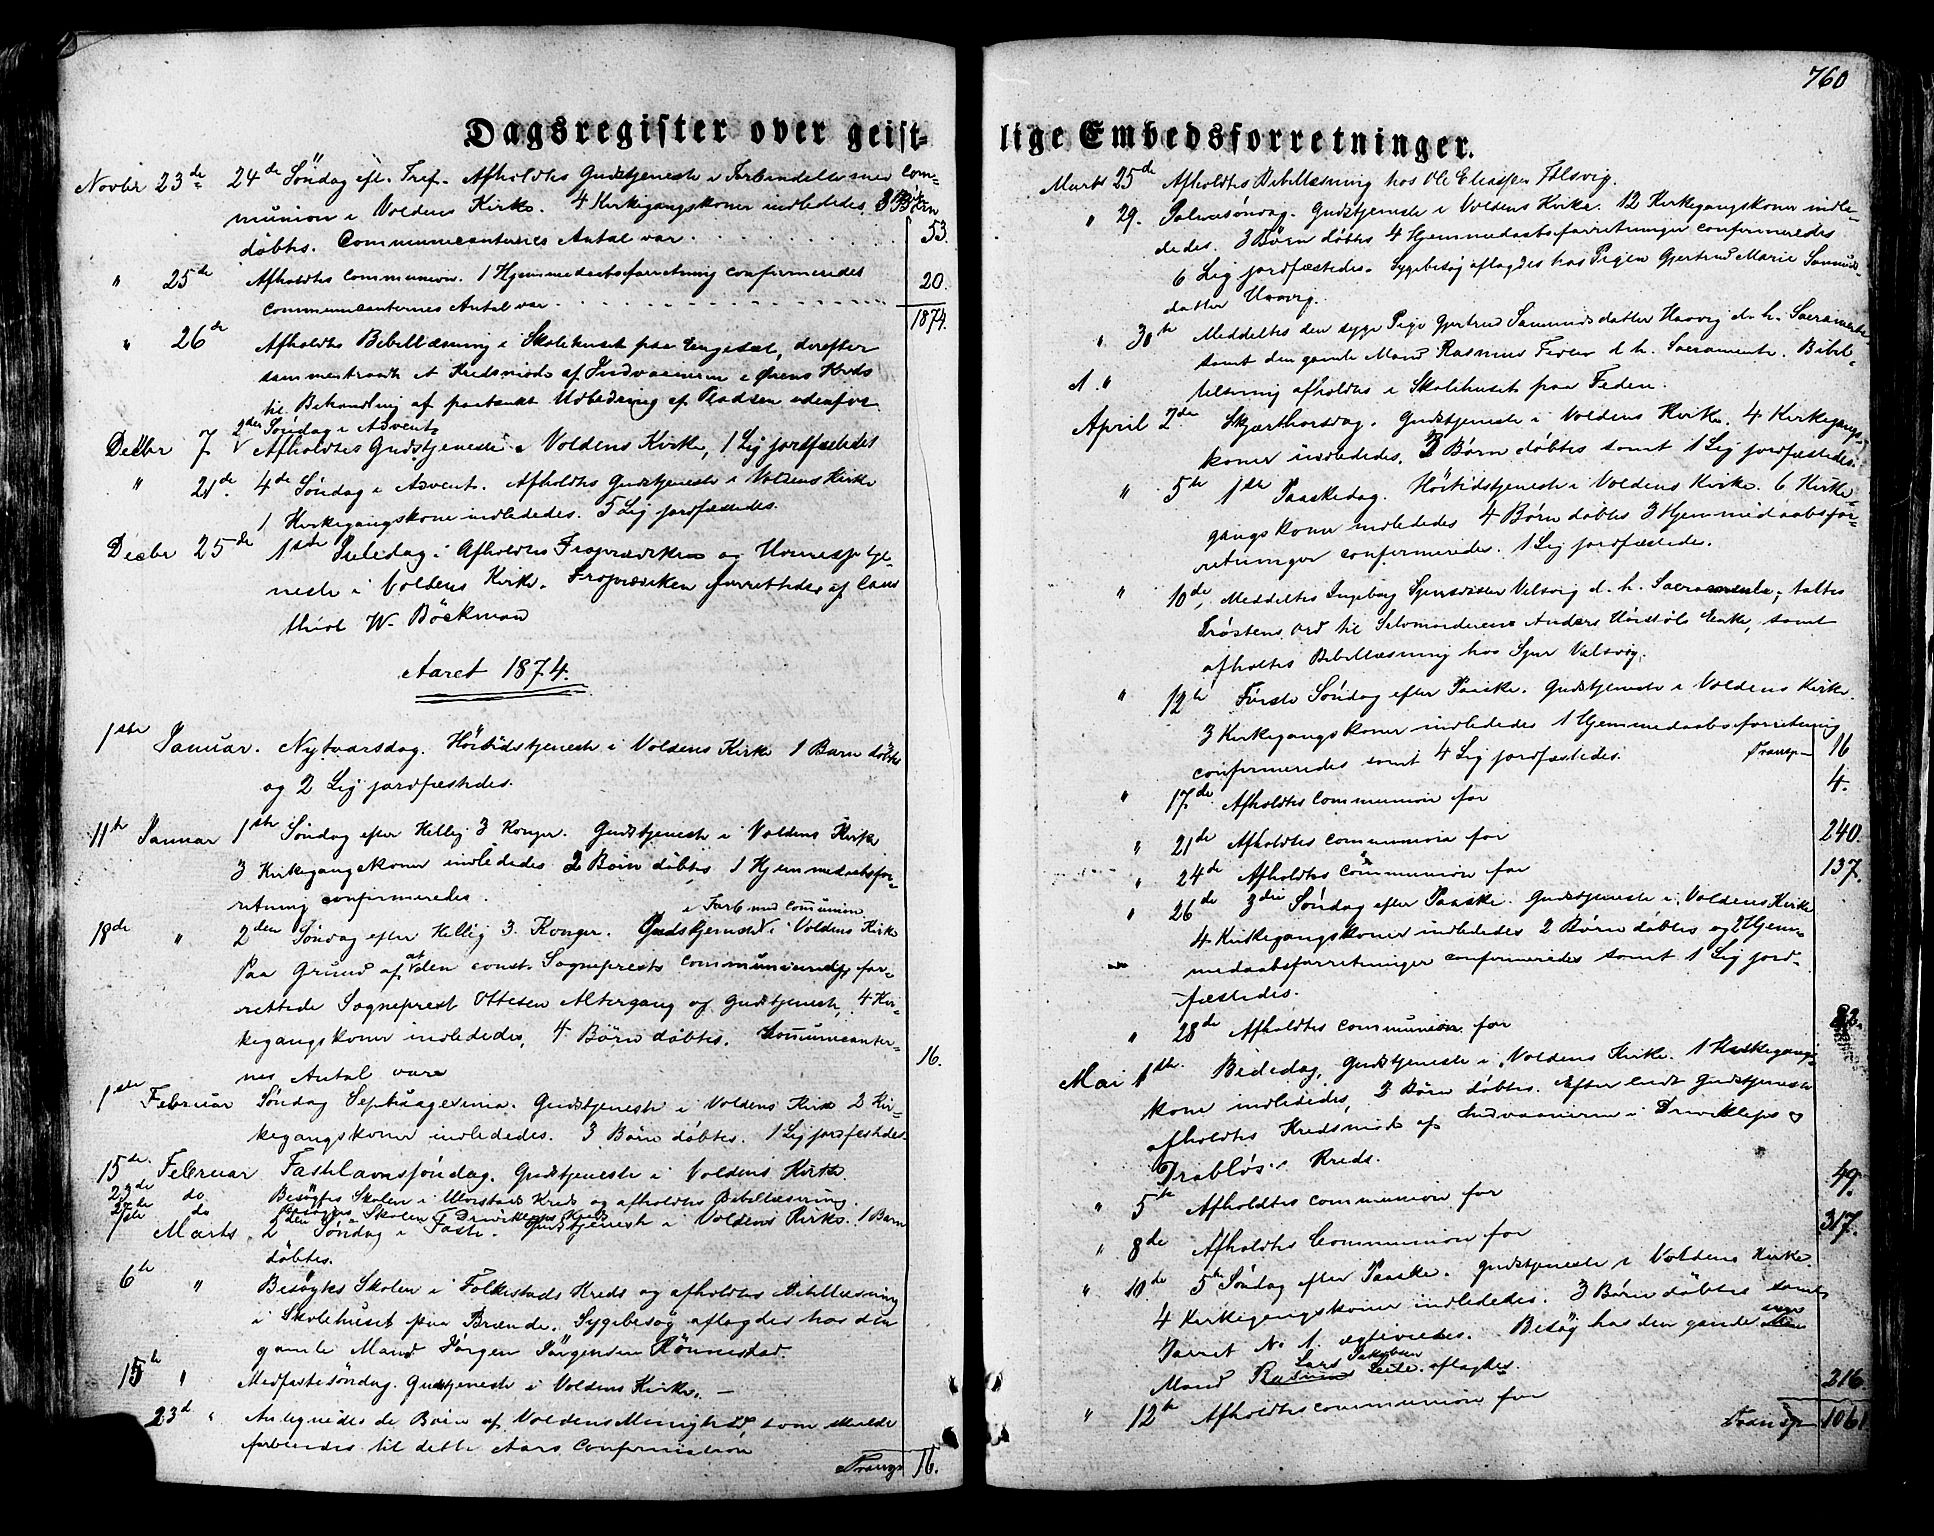 760
Dagsregister over geist-
Novbr 23de 24de Söndag eft. Tref. Afholdtes Gudstjeneste i Forbindelse med Com-
munion i Voldens Kirke. 4 Kirkegangskoner indlededes 3 Börn
döbtes. Communicanternes Antal var 53.
" 25de Afholdtes Communion. 1 Hjemmedaabsforretning confirmeredes
Communicanternes Antal var 20.
1874.
" 26de Afholdtes Bibellæsning i Skolehuset paa Engeset, derefter
sammentraadte et Kredsmöde af Indvaanerne i Ørens Kreds
til Behandling af paatænkt Udbedring af Pladsen udenfor
2den Söndag i Advent
Decbr 7 Afholdtes Gudstjeneste i Voldens Kirke, 1 Lig jordfæstedes
" 21de. 4de Söndag i Advent. Afholdtes Gudstjeneste i Voldens Kirke
1 Kirkegangskone indlededes. 5 Lig jordfæstedes.
Decbr 25de 1ste Juledag. Afholdtes Froprædiken og Höimessetje-
neste i Voldens Kirke. Froprædiken forrettedes af Cand
theol W. Böckman
Aaret 1874.
1ste Januar. Nytaarsdag. Höitidstjeneste i Voldens Kirke 1 Barn döbtes
og 2 Lig jordfæstedes.
11te Januar 1ste Söndag efter Hellig 3 Konger. Gudstjeneste i Voldens Kirke
3 Kirkegangskoner indlededes 2 Börn döbtes, 1 Hjemmedaabsfor-
retning confirmeredes.
i Forb med Communion
18de " 2den Söndag efter Hellig 3. Konger. Gudstjeneste i Voldens Kirke
Paa Grund af at den const. Sognepræst communicerede, for-
rettede Sogneprest Ottesen Altergang og Gudstjeneste, 4 Kir-
kegangskoner indlededes, 4 Börn döbtes. Communicanter-
nes Antal vare 16.
1ste Februar Söndag Septuagesima. Gudstjeneste i Voldens Kirke 2 Kir-
kegangskoner indlededes. 3 Börn döbtes. 1 Lig jordfæstedes
15de Februar Fastelavnssöndag. Gudstjeneste i Voldens Kirke.
23de do Besögtes Skolen i Kreds og afholdtes Bibellæsning.
27de do Besögtes Skolen i Drivklepps Kreds
1ste Marts 2den Söndag i Faste. Gudstjeneste i Voldens Kirke. 1 Barn
döbtes.
6te " Besögtes Skolen i Folkestads Kreds og afholdtes Bibellæsning
i Skolehuset paa Brænde. Sygebesög aflagdes hos den
gamle Mand Jörgen Jörgensen Rönnestad.
15te " Midfastesöndag. Gudstjeneste i Voldens Kirke.
23d " Antegnedes de Börn af Voldens Menighed, som skulde
forberedes til dette Aars Confirmation
Transp 16.
lige Embedsforretninger.
Marts 25de Afholdtes Bibellæsning hos Ole Eliassen Fölsvig.
" 29. Palmesöndag. Gudstjeneste i Voldens Kirke. 12 Kirkegangskoner indle-
dedes. 3 Börn döbtes 4 Hjemmedaabsforretninger confirmeredes
6 Lig jordfæstedes. Sygebesög aflagdes hos Pigen Gjertrud Marie Samuels
datter Haavig.
" 30te Meddeltes den syge Pige Gjertrud Samuelsdatter Haavig d. h. Sacramente
samt den gamle Mand Rasmus d. h. Sacramente. Bibel-
læsning afholdtes i Skolehuset paa Feden.
April 2de Skjærthorsdag. Gudstjeneste i Voldens Kirke. 4 Kirkegangs-
koner indlededes, 3 Börn döbtes samt 1 Lig jordfæstedes.
" 5te 1ste Paaskedag. Höitidstjeneste i Voldens Kirke. 6 Kirke-
gangskoner indlededes 4 Börn döbtes 3 Hjemmedaabsfor-
retninger confirmeredes. 1 Lig jordfæstedes.
" 10de, Meddeltes Ingeborg Velsvig d. h. Sacramente, taltes
Tröstens ord til Selvmorderens Anders Enke, samt
afholdtes Bibellæsning hos Sjur Velsvig.
" 12te Förste Söndag efter Paaske. Gudstjeneste i Voldens Kirke.
3 Kirkegangskoner indlededes 1 Hjemmedaabsforretning
confirmeredes samt 4 Lig jordfæstedes. Transp 16
" 17de Afholdtes Communion for 4.
" 21de Afholdtes Communion for 240.
" 24de Afholdtes Communion for 137.
" 26de 3die Söndag efter Paaske. Gudstjeneste i Voldens Kirke
4 Kirkegangskoner indlededes 2 Börn döbtes og 2 Hjem-
medaabsforretninger confirmeredes samt 1 Lig jord-
fæstedes.
" 28de Afholdtes Communion for 82.
Mai 1ste. Bededag, Gudstjeneste i Voldens Kirke. 1 Kirkegangs-
kone indlededes, 2 Börn döbtes. Efter endt Gudstjeneste
afholdtes Kredsmöde af Indvaanerne i Drivklepps og
Kreds.
" 5te Afholdtes Communion for 49.
" 8de Afholdtes Communion for 317.
" 10de 5te Söndag efter Paaske. Gudstjeneste i Voldens Kirke.
4 Kirkegangskoner indlededes. 3 Börn döbtes samt
Parret No 1. ægtviedes. Besög hos den gamle
Lars Jakobsen
Mand Rasmus aflagdes.
" 12te Afholdtes Communion for 216
Transp 1061